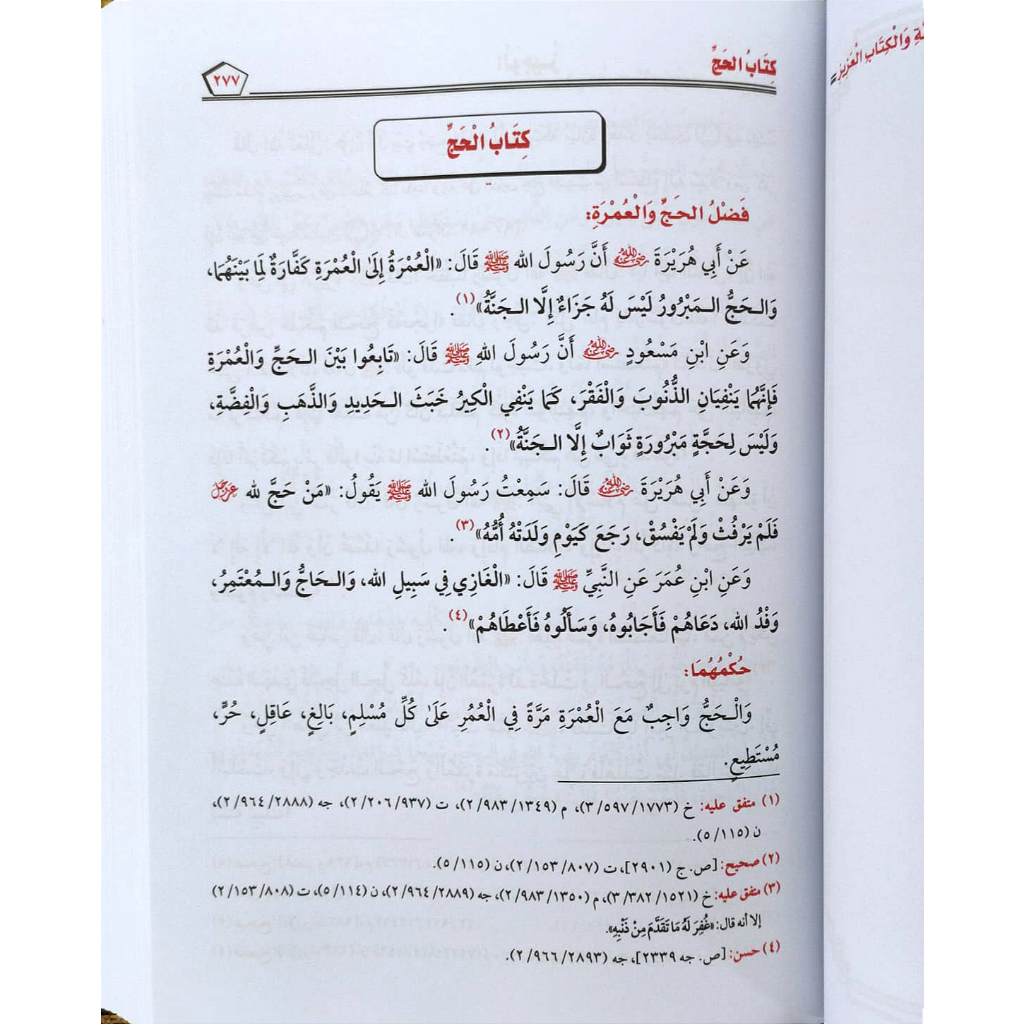 كِتَابُ الْحَجِّ
٢٧٧
كِتَابُ الْحَجِّ
فَضْلُ الحَجِّ وَالْعُمْرَةِ:
عَنْ أَبِي هُرَيْرَةَ رضي الله عنه أَنَّ رَسُولَ الله ﷺ قَالَ: «الْعُمْرَةُ إِلَى الْعُمْرَةِ كَفَّارَةٌ لِمَا بَيْنَهُمَا،
وَالـحَجُّ الـمَبْرُورُ لَيْسَ لَهُ جَزَاءٌ إِلَّا الـجَنَّةُ»(١).
وَعَنِ ابْنِ مَسْعُودٍ رضي الله عنه أَنَّ رَسُولَ الله ﷺ قَالَ: «تَابِعُوا بَيْنَ الـحَجِّ وَالْعُمْرَةِ
فَإِنَّهُمَا يَنْفِيَانِ الذُّنُوبَ وَالْفَقْرَ، كَمَا يَنْفِي الْكِيرُ خَبَثَ الـحَدِيدِ وَالذَّهَبِ وَالْفِضَّةِ،
وَلَيْسَ لِحَجَّةٍ مَبْرُورَةٍ ثَوَابٌ إِلَّا الـجَنَّةُ»(٢).
وَعَنْ أَبِي هُرَيْرَةَ رضي الله عنه قَالَ: سَمِعْتُ رَسُولَ الله ﷺ يَقُولُ: «مَنْ حَجَّ لله عز وجل
فَلَمْ يَرْفُثْ وَلَمْ يَفْسُقْ، رَجَعَ كَيَوْمِ وَلَدَتْهُ أُمُّهُ»(٣).
وَعَنِ ابْنِ عُمَرَ عَنِ النَّبِيِّ ﷺ قَالَ: «الْغَازِي فِي سَبِيلِ الله، وَالـحَاجُّ وَالـمُعْتَمِرُ،
وَفْدُ الله، دَعَاهُمْ فَأَجَابُوهُ، وَسَأَلُوهُ فَأَعْطَاهُمْ»(٤).
حُكْمُهُمَا:
وَالْـحَجُّ وَاجِبٌ مَعَ الْعُمْرَةِ مَرَّةً فِي الْعُمُرِ عَلَى كُلِّ مُسْلِمٍ، بَالِغٍ، عَاقِلٍ، حُرٍّ،
مُسْتَطِيعٍ.
(١) متفق عليه: خ (١٧٧٣/ ٥٩٧/ ٣)، م (١٣٤٩/ ٩٨٣/ ٢)، ت (٩٣٧/ ٢٠٦/ ٢)، جه (٢٨٨٨/ ٩٦٤/ ٢)،
ن (١١٥/ ٥).
(٢) صحيح: [ص. ج ٢٩٠١]، ت (٨٠٧/ ١٥٣/ ٢)، ن (١١٥/ ٥).
(٣) متفق عليه: خ (١٥٢١/ ٣٨٢/ ٣)، م (١٣٥٠/ ٩٨٣/ ٢)، جه (٢٨٨٩/ ٩٦٤/ ٢)، ن (١١٤/ ٥)، ت (٨٠٨/ ١٥٣/ ٢)
إلا أنه قال: «غُفِرَ لَهُ مَا تَقَدَّمَ مِنْ ذَنْبِهِ».
(٤) حسن: [ص. جه ٢٣٣٩]، جه (٢٨٩٣/ ٩٦٦/ ٢).
وَالْكِتَابِ الْعَزِيزِ